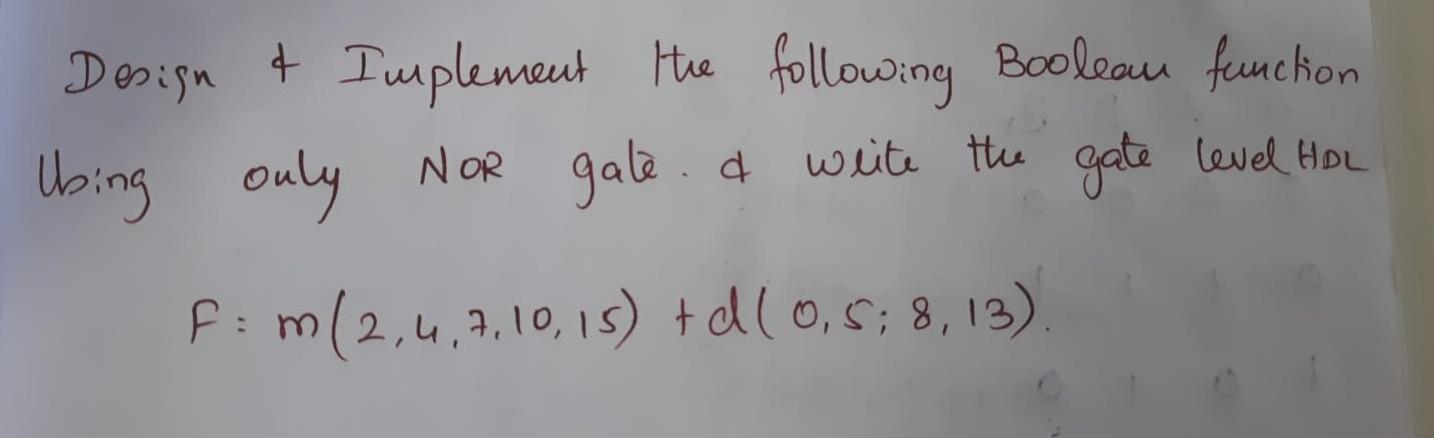 Design & Implement the following Boolean function
Using only NOR gate. & write the gate level HDL
F = m(2,4,7,10,15) + d(0,5;8,13).